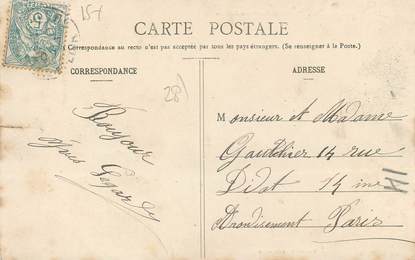 15+
CARTE POSTALE
Correspondance au recto n'est pas acceptée par tous les pays étrangers. (Se renseigner à la Poste.)
CORRESPONDANCE
ADRESSE
28
Bonjour
Yves
Monsieur et Madame
Gauthier 14 rue
Didot 14 me
Arondisement Paris